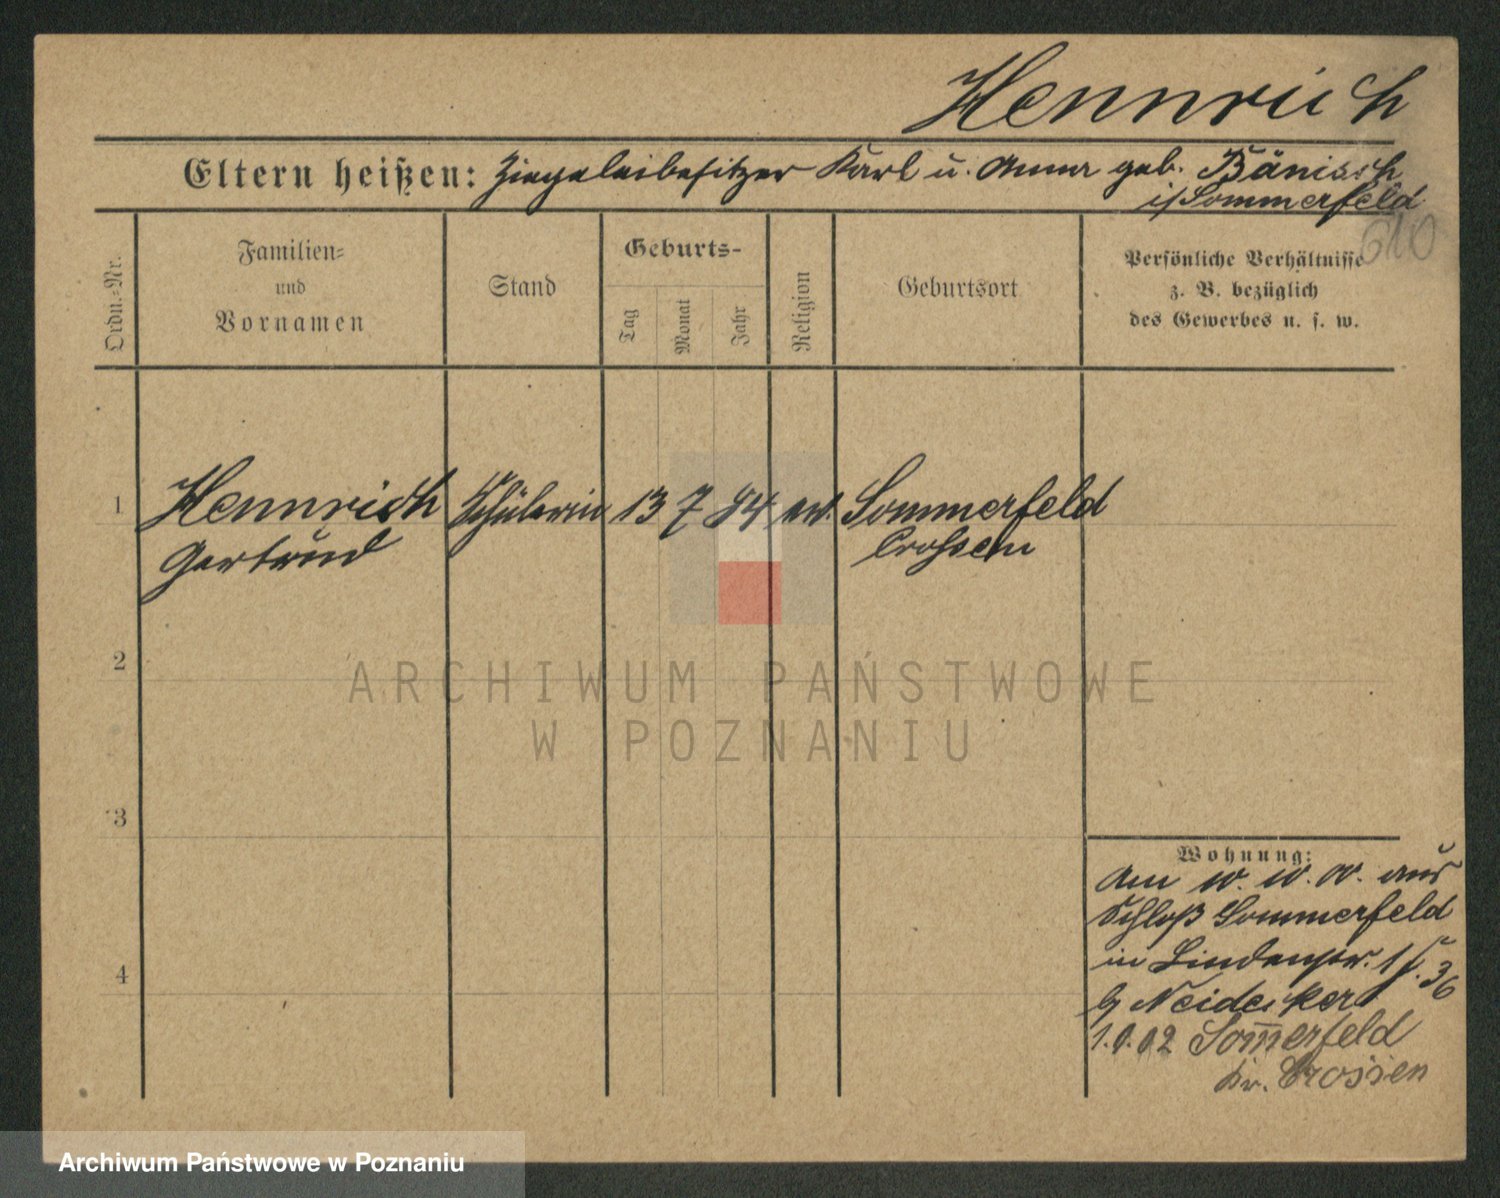 Hennrich
Eltern heißen: Ziegeleibesitzer Karl u. Anna geb. Bänisch
i/Sommerfeld
610
Ordn.-Nr.
Familien-
und
Vornamen
Stand
Geburts-
Tag
Monat
Jahr
Religion
Geburtsort
Persönliche Verhältnisse
z. B. bezüglich
des Gewerbes u. s. w.
1 Hennrich Schülerin 13 7 84 ev. Sommerfeld
Gertrud Crossen
2
ARCHIWUM PAŃSTWOWE
W POZNANIU
3
Wohnung:
Am aus
Schloß Sommerfeld
in Lindenstr. 1
4
b/ Neidecker
1. 02 Som̅erfeld
Kr. Crossen
Archiwum Państwowe w Poznaniu